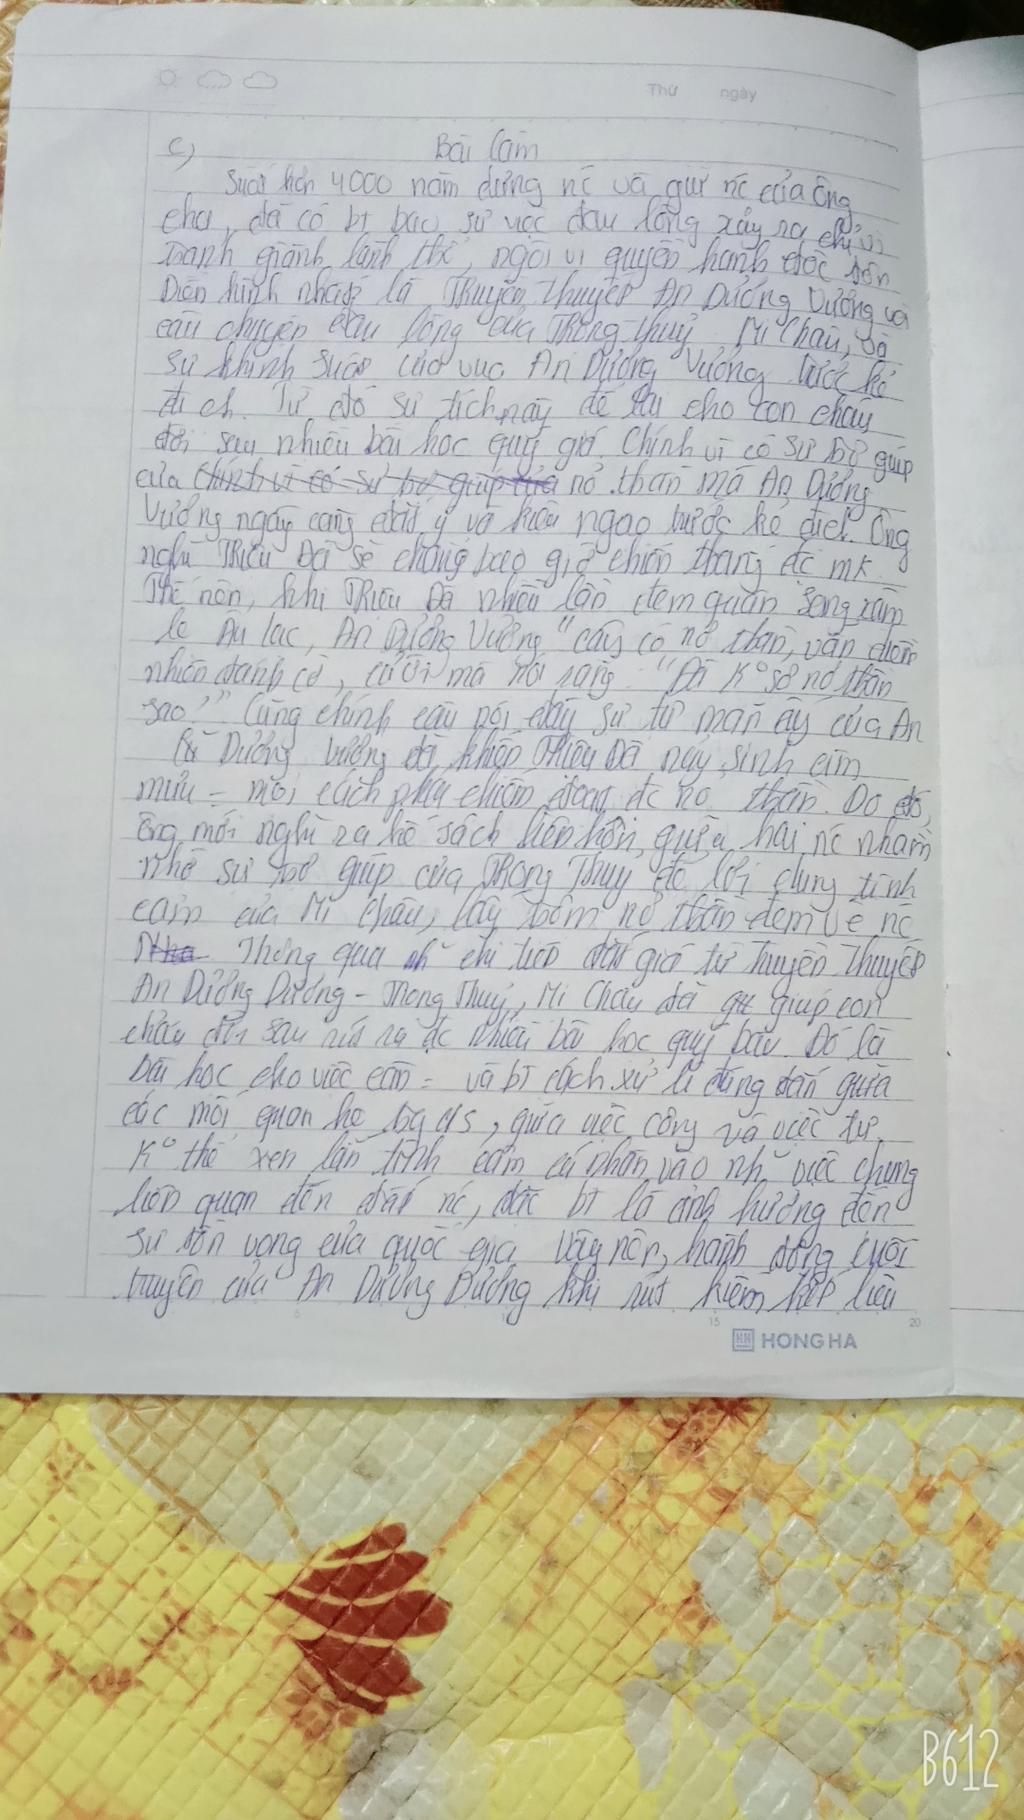 Thứ ngày
c) Bài làm
Suốt 4000 năm dựng nc và giữ nc của ông
cha, đã có bt bao sự việc đau lòng xảy ra chỉ vì
tranh giành lãnh thổ, ngôi vị quyền hành độc tôn
Điển hình nhất là Truyền Thuyết An Dương Vương và
câu chuyện đau lòng của Trọng Thuỷ Mị Châu, và
sự khinh suất của vua An Dương Vương trước kẻ
địch. Từ đó sự tích này để lại cho con cháu
đời sau nhiều bài học quý giá. Chính vì có sự trợ giúp
của nỏ thần mà An Dương
Vương ngày càng đắc ý và kiêu ngạo trước kẻ địch. Ông
nghĩ Triệu Đà sẽ chẳng bao giờ chiến thắng đc mk.
Thế nên, khi Triệu Đà nhiều lần đem quân sang xâm
lc Âu Lạc, An Dương Vương "cậy có nỏ thần, vẫn điềm
nhiên đánh cờ, cười mà nói rằng: "Đà K° sợ nỏ thần
sao?" Cũng chính câu nói đầy sự tự mãn ấy của An
Dương Vương đã khiến Triệu Đà nảy sinh âm
mưu = mọi cách phải chiếm đoạt đc nỏ thần. Do đó,
ông mới nghĩ ra kế sách liên hôn giữa hai nc nhằm
nhờ sự trợ giúp của Trọng Thuỷ để lợi dụng tình
cảm của Mị Châu, lấy trộm nỏ thần đem về nc
Thông qua nh~ chi tiết đắt giá từ Truyền Thuyết
An Dương Dương - Trọng Thuỷ, Mị Châu đã giúp con
cháu đời sau rút ra đc nhiều bài học quý báu. Đó là
bài học cho việc cân = và bt cách xử lí đúng đắn giữa
các mối quan hệ giữa việc công và việc tư.
K° thể xen lẫn tình cảm cá nhân vào nh~ việc chung
liên quan đến đất nc, đặc bt là ảnh hưởng đến
sự tồn vong của quốc gia. Vậy nên, hành động cuối
truyện của An Dương Dương khi rút kiếm kết liễu
5 15 20
HONG HA
B612